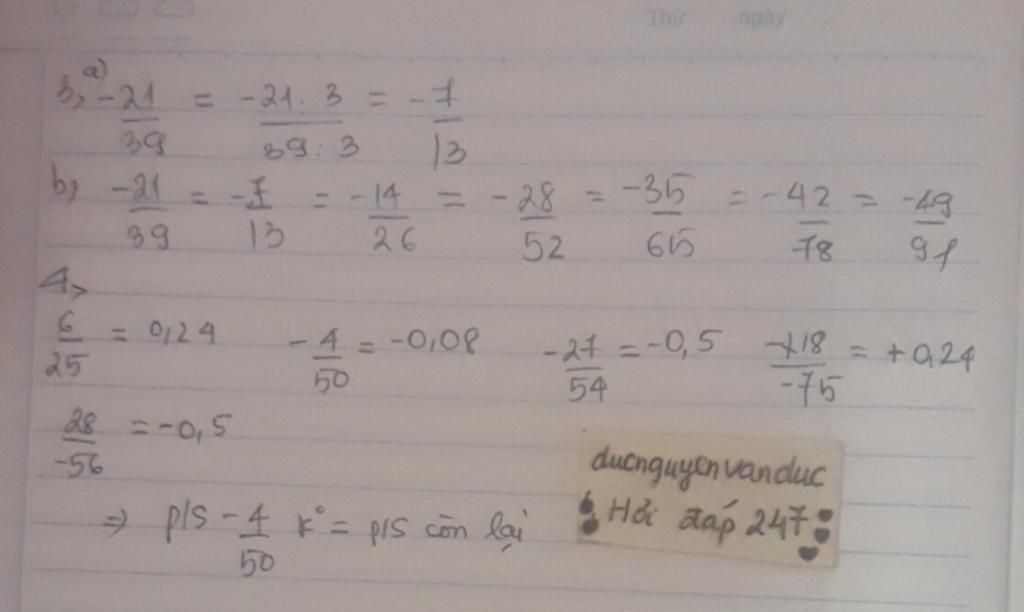 Thứ ngày
3, a) -21/39 = -21. 3/39: 3 = -7/13
b, -21/39 = -7/13 = -14/26 = -28/52 = -35/65 = -42/78 = -49/91
4,
6/25 = 0,24 -4/50 = -0,08 -27/54 = -0,5 -18/-75 = +0,24
28/-56 = -0,5
⇒ p/s -4/50 k° = p/s còn lại
ducnguyenvanduc
Hỏi đáp 247